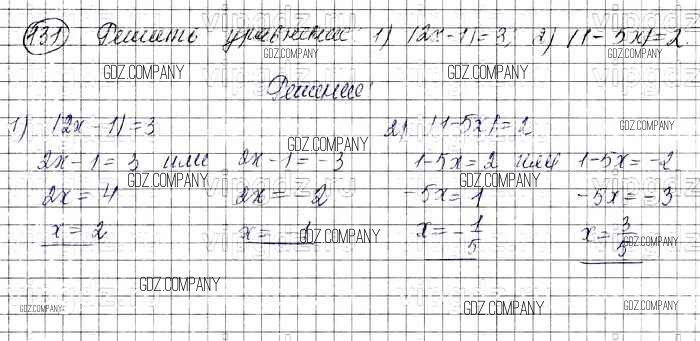 731) Решить уравнение: 1) |2x-1|=3; 2) |1-5x|=2
GDZ.COMPANY GDZ.COMPANY GDZ.COMPANY GDZ.COMPANY
Решение:
1) |2x-1|=3 2) |1-5x|=2
GDZ.COMPANY GDZ.COMPANY
2x-1=3 или 2x-1=-3 1-5x=2 или 1-5x=-2
GDZ.COMPANY GDZ.COMPANY
2x=4 2x=-2 -5x=1 -5x=-3
x=2 x=-1 x=-1/5 x=3/5
GDZ.COMPANY GDZ.COMPANY
GDZ.COMPANY
GDZ.COMPANY GDZ.COMPANY GDZ.COMPANY